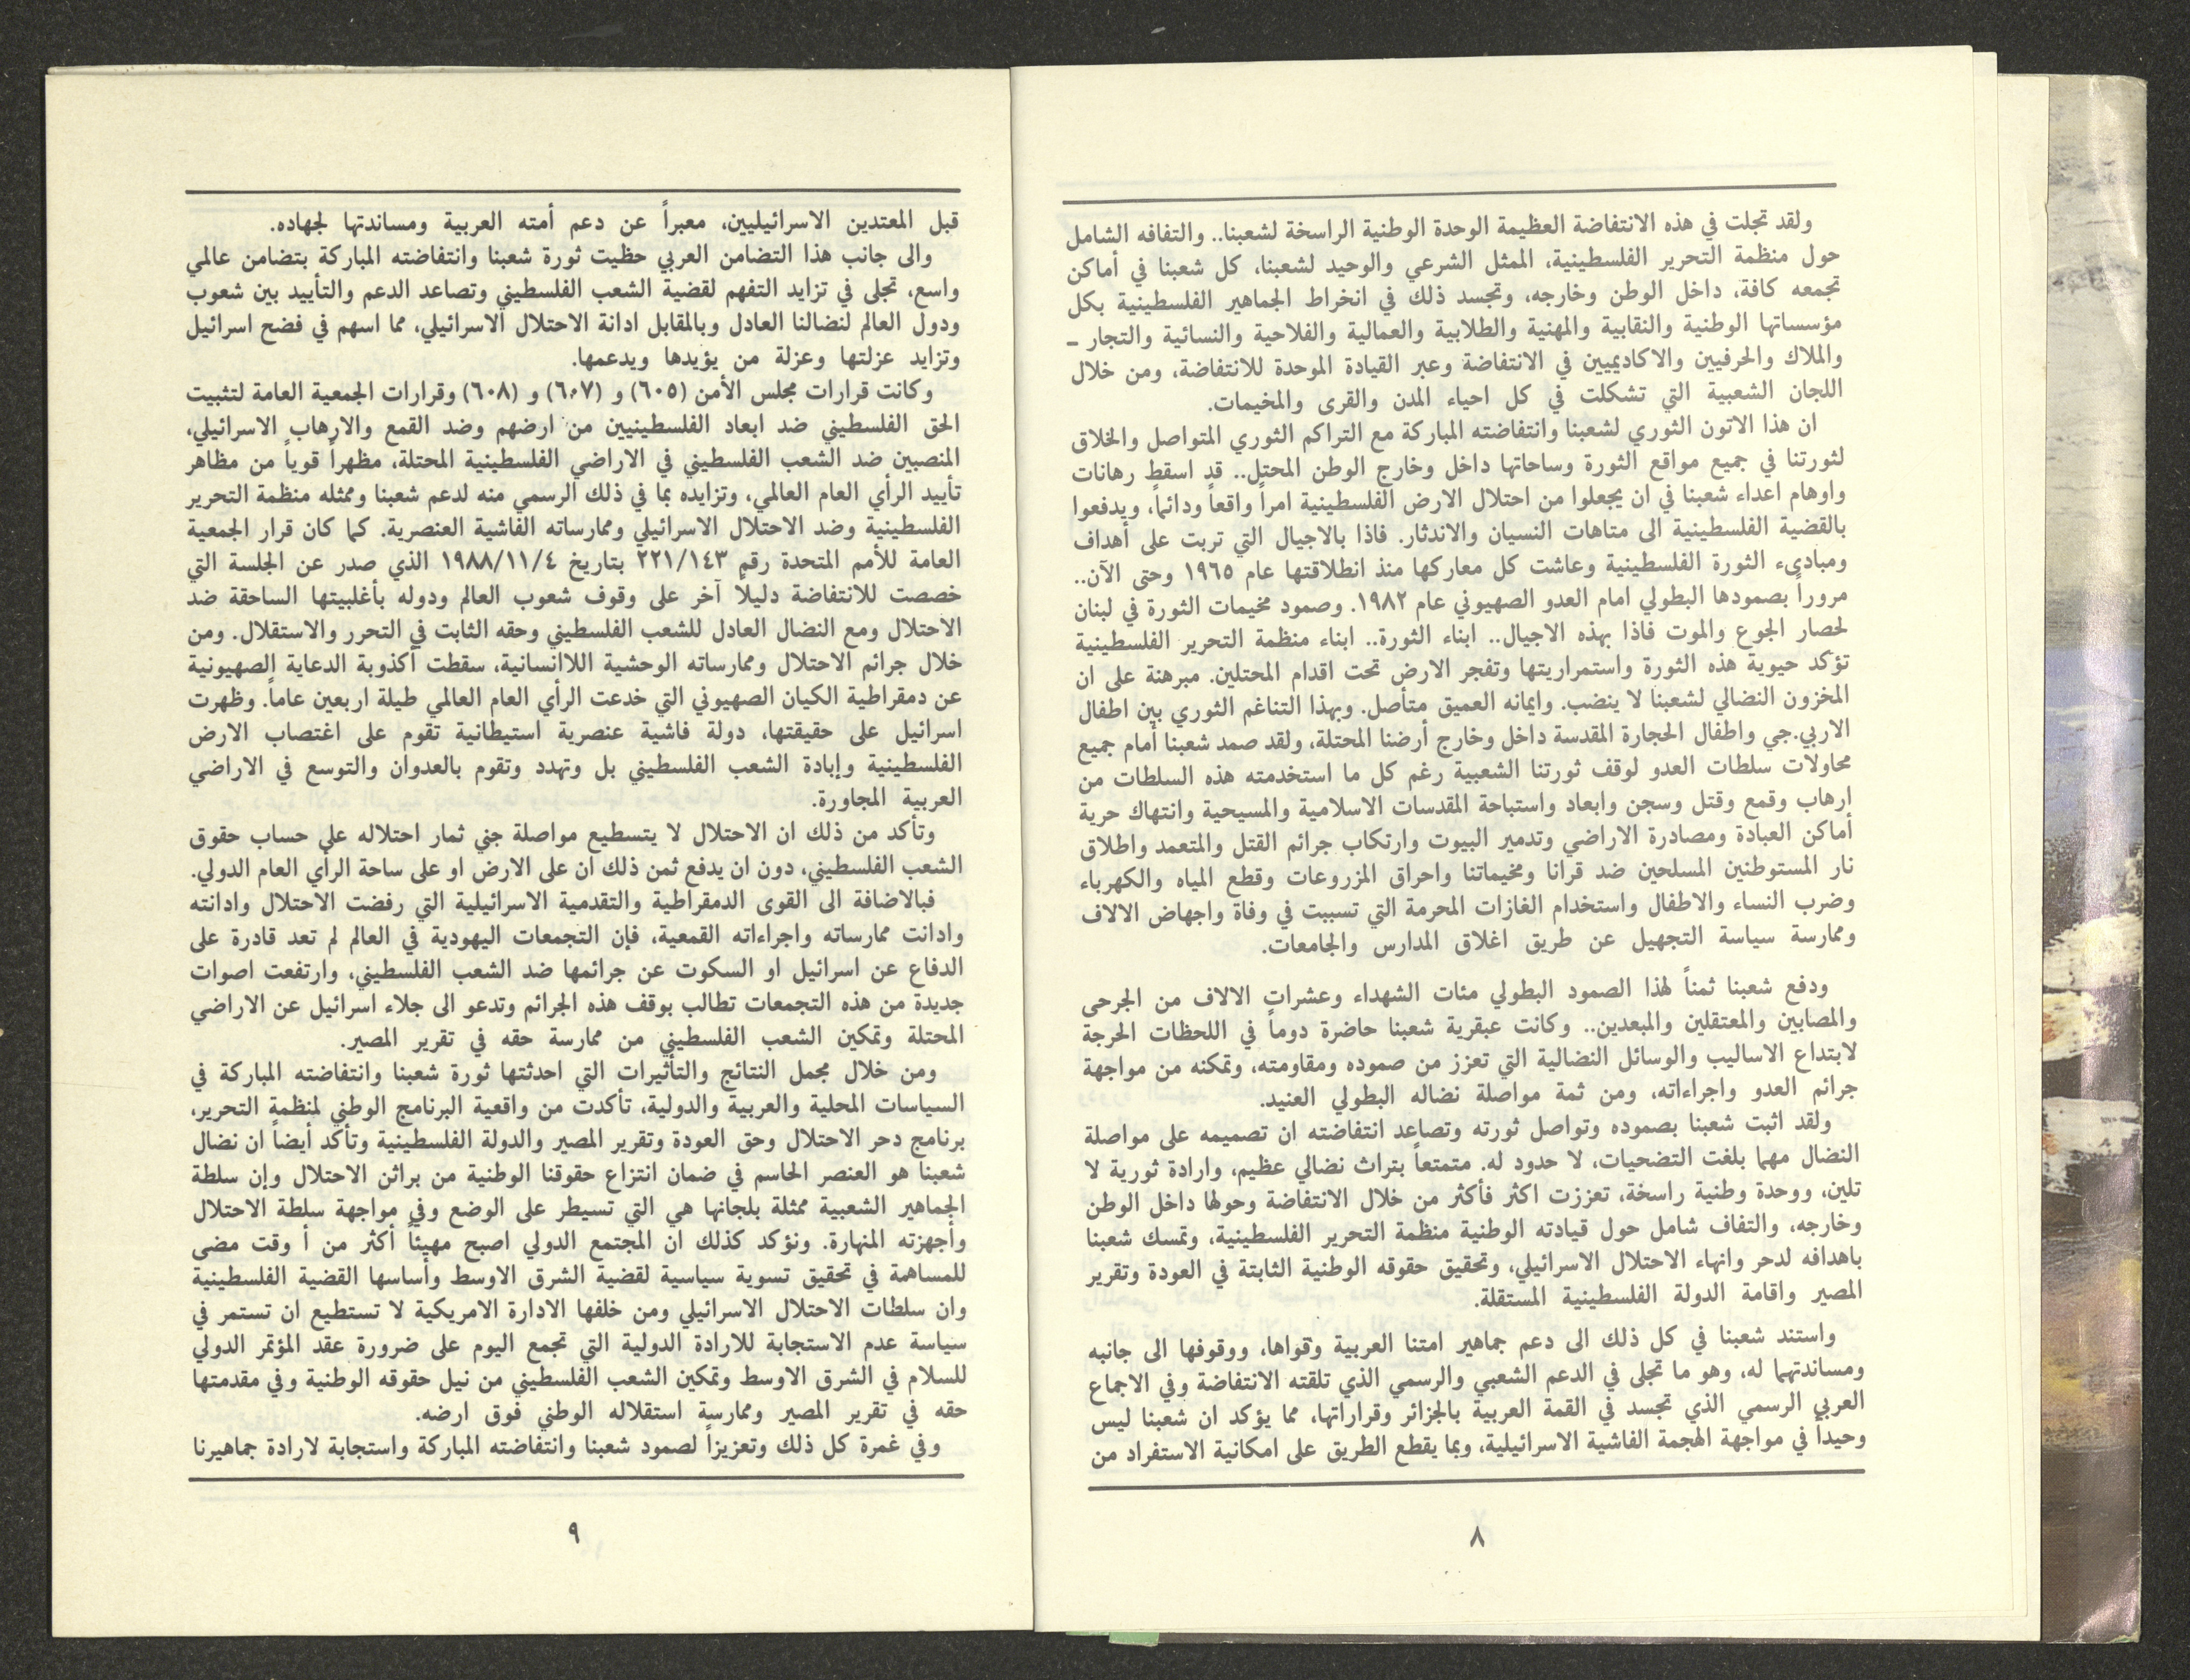 ولقد تجلت في هذه الانتفاضة العظيمة الوحدة الوطنية الراسخة لشعبنا.. والتفافه الشامل
حول منظمة التحرير الفلسطينية، الممثل الشرعي والوحيد لشعبنا، كل شعبنا في أماكن
تجمعه كافة، داخل الوطن وخارجه، وتجسد ذلك في انخراط الجماهير الفلسطينية بكل
مؤسساتها الوطنية والنقابية والمهنية والطلابية والعمالية والفلاحية والنسائية والتجار -
والملاك والحرفيين والاكاديميين في الانتفاضة وعبر القيادة الموحدة للانتفاضة، ومن خلال
اللجان الشعبية التي تشكلت في كل احياء المدن والقرى والمخيمات.
ان هذا الاتون الثوري لشعبنا وانتفاضته المباركة مع التراكم الثوري المتواصل والخلاق
لثورتنا في جميع مواقع الثورة وساحاتها داخل وخارج الوطن المحتل.. قد اسقط رهانات
واوهام اعداء شعبنا في ان يجعلوا من احتلال الارض الفلسطينية امراً واقعاً ودائماً، ويدفعوا
بالقضية الفلسطينية الى متاهات النسيان والاندثار. فاذا بالاجيال التي تربت على أهداف
ومبادىء الثورة الفلسطينية وعاشت كل معاركها منذ انطلاقتها عام ١٩٦٥ وحتى الآن..
مروراً بصمودها البطولي امام العدو الصهيوني عام ١٩٨٢. وصمود مخيمات الثورة في لبنان
لحصار الجوع والموت فاذا بهذه الاجيال.. ابناء الثورة.. ابناء منظمة التحرير الفلسطينية
تؤكد حيوية هذه الثورة واستمراريتها وتفجر الارض تحت اقدام المحتلين. مبرهنة على ان
المخزون النضالي لشعبنا لا ينضب. وايمانه العميق متأصل. وبهذا التناغم الثوري بين اطفال
الاربي.جي واطفال الحجارة المقدسة داخل وخارج أرضنا المحتلة، ولقد صمد شعبنا أمام جميع
محاولات سلطات العدو لوقف ثورتنا الشعبية رغم كل ما استخدمته هذه السلطات من
ارهاب وقمع وقتل وسجن وابعاد واستباحة المقدسات الاسلامية والمسيحية وانتهاك حرية
أماكن العبادة ومصادرة الاراضي وتدمير البيوت وارتكاب جرائم القتل والمتعمد واطلاق
نار المستوطنين المسلحين ضد قرانا ومخيماتنا واحراق المزروعات وقطع المياه والكهرباء
وضرب النساء والاطفال واستخدام الغازات المحرمة التي تسببت في وفاة واجهاض الالاف
وممارسة سياسة التجهيل عن طريق اغلاق المدارس والجامعات.
ودفع شعبنا ثمناً لهذا الصمود البطولي مئات الشهداء وعشرات الالاف من الجرحى
والمصابين والمعتقلين والمبعدين.. وكانت عبقرية شعبنا حاضرة دوماً في اللحظات الحرجة
لابتداع الاساليب والوسائل النضالية التي تعزز من صموده ومقاومته، وتمكنه من مواجهة
جرائم العدو واجراءاته، ومن ثمة مواصلة نضاله البطولي العنيد.
ولقد اثبت شعبنا بصموده وتواصل ثورته وتصاعد انتفاضته ان تصميمه على مواصلة
النضال مهما بلغت التضحيات، لا حدود له. متمتعاً بتراث نضالي عظيم، وارادة ثورية لا
تلين، ووحدة وطنية راسخة، تعززت اكثر فأكثر من خلال الانتفاضة وحولها داخل الوطن
وخارجه، والتفاف شامل حول قيادته الوطنية منظمة التحرير الفلسطينية، وتمسك شعبنا
باهدافه لدحر وانهاء الاحتلال الاسرائيلي، وتحقيق حقوقه الوطنية الثابتة في العودة وتقرير
المصير واقامة الدولة الفلسطينية المستقلة.
واستند شعبنا في كل ذلك الى دعم جماهير امتنا العربية وقواها، ووقوفها الى جانبه
ومساندتهما له، وهو ما تجلى في الدعم الشعبي والرسمي الذي تلقته الانتفاضة وفي الاجماع
العربي الرسمي الذي تجسد في القمة العربية بالجزائر وقراراتها، مما يؤكد ان شعبنا ليس
وحيداً في مواجهة الهجمة الفاشية الاسرائيلية، وبما يقطع الطريق على امكانية الاستفراد من
٨
قبل المعتدين الاسرائيليين، معبراً عن دعم أمته العربية ومساندتها لجهاده.
والى جانب هذا التضامن العربي حظيت ثورة شعبنا وانتفاضته المباركة بتضامن عالمي
واسع، تجلى في تزايد التفهم لقضية الشعب الفلسطيني وتصاعد الدعم والتأييد بين شعوب
ودول العالم لنضالنا العادل وبالمقابل ادانة الاحتلال الاسرائيلي، مما اسهم في فضح اسرائيل
وتزايد عزلتها وعزلة من يؤيدها ويدعمها.
وكانت قرارات مجلس الأمن (٦٠٥) و (٦٠٧) و (٦٠٨) وقرارات الجمعية العامة لتثبيت
الحق الفلسطيني ضد ابعاد الفلسطينيين من ارضهم وضد القمع والارهاب الاسرائيلي،
المنصبين ضد الشعب الفلسطيني في الاراضي الفلسطينية المحتلة، مظهراً قوياً من مظاهر
تأييد الرأي العام العالمي، وتزايده بما في ذلك الرسمي منه لدعم شعبنا وممثله منظمة التحرير
الفلسطينية وضد الاحتلال الاسرائيلي وممارساته الفاشية العنصرية. كما كان قرار الجمعية
العامة للأمم المتحدة رقم ٢٢١/١٤٣ بتاريخ ١٩٨٨/١١/٤ الذي صدر عن الجلسة التي
خصصت للانتفاضة دليلاً آخر على وقوف شعوب العالم ودوله بأغلبيتها الساحقة ضد
الاحتلال ومع النضال العادل للشعب الفلسطيني وحقه الثابت في التحرر والاستقلال. ومن
خلال جرائم الاحتلال وممارساته الوحشية اللاانسانية، سقطت أكذوبة الدعاية الصهيونية
عن دمقراطية الكيان الصهيوني التي خدعت الرأي العام العالمي طيلة اربعين عاماً. وظهرت
اسرائيل على حقيقتها، دولة فاشية عنصرية استيطانية تقوم على اغتصاب الارض
الفلسطينية وإبادة الشعب الفلسطيني بل وتهدد وتقوم بالعدوان والتوسع في الاراضي
العربية المجاورة.
وتأكد من ذلك ان الاحتلال لا يتسطيع مواصلة جني ثمار احتلاله على حساب حقوق
الشعب الفلسطيني، دون ان يدفع ثمن ذلك ان على الارض او على ساحة الرأي العام الدولي.
فبالاضافة الى القوى الدمقراطية والتقدمية الاسرائيلية التي رفضت الاحتلال وادانته
وادانت ممارساته واجراءاته القمعية، فإن التجمعات اليهودية في العالم لم تعد قادرة على
الدفاع عن اسرائيل او السكوت عن جرائمها ضد الشعب الفلسطيني، وارتفعت اصوات
جديدة من هذه التجمعات تطالب بوقف هذه الجرائم وتدعو الى جلاء اسرائيل عن الاراضي
المحتلة وتمكين الشعب الفلسطيني من ممارسة حقه في تقرير المصير.
ومن خلال مجمل النتائج والتأثيرات التي احدثتها ثورة شعبنا وانتفاضته المباركة في
السياسات المحلية والعربية والدولية، تأكدت من واقعية البرنامج الوطني لمنظمة التحرير،
برنامج دحر الاحتلال وحق العودة وتقرير المصير والدولة الفلسطينية وتأكد أيضاً ان نضال
شعبنا هو العنصر الحاسم في ضمان انتزاع حقوقنا الوطنية من براثن الاحتلال وإن سلطة
الجماهير الشعبية ممثلة بلجانها هي التي تسيطر على الوضع وفي مواجهة سلطة الاحتلال
وأجهزته المنهارة. ونؤكد كذلك ان المجتمع الدولي اصبح مهيئاً أكثر من أ وقت مضى
للمساهمة في تحقيق تسوية سياسية لقضية الشرق الاوسط وأساسها القضية الفلسطينية
وان سلطات الاحتلال الاسرائيلي ومن خلفها الادارة الامريكية لا تستطيع ان تستمر في
سياسة عدم الاستجابة للارادة الدولية التي تجمع اليوم على ضرورة عقد المؤتمر الدولي
للسلام في الشرق الاوسط وتمكين الشعب الفلسطيني من نيل حقوقه الوطنية وفي مقدمتها
حقه في تقرير المصير وممارسة استقلاله الوطني فوق ارضه.
وفي غمرة كل ذلك وتعزيزاً لصمود شعبنا وانتفاضته المباركة واستجابة لارادة جماهيرنا
٩